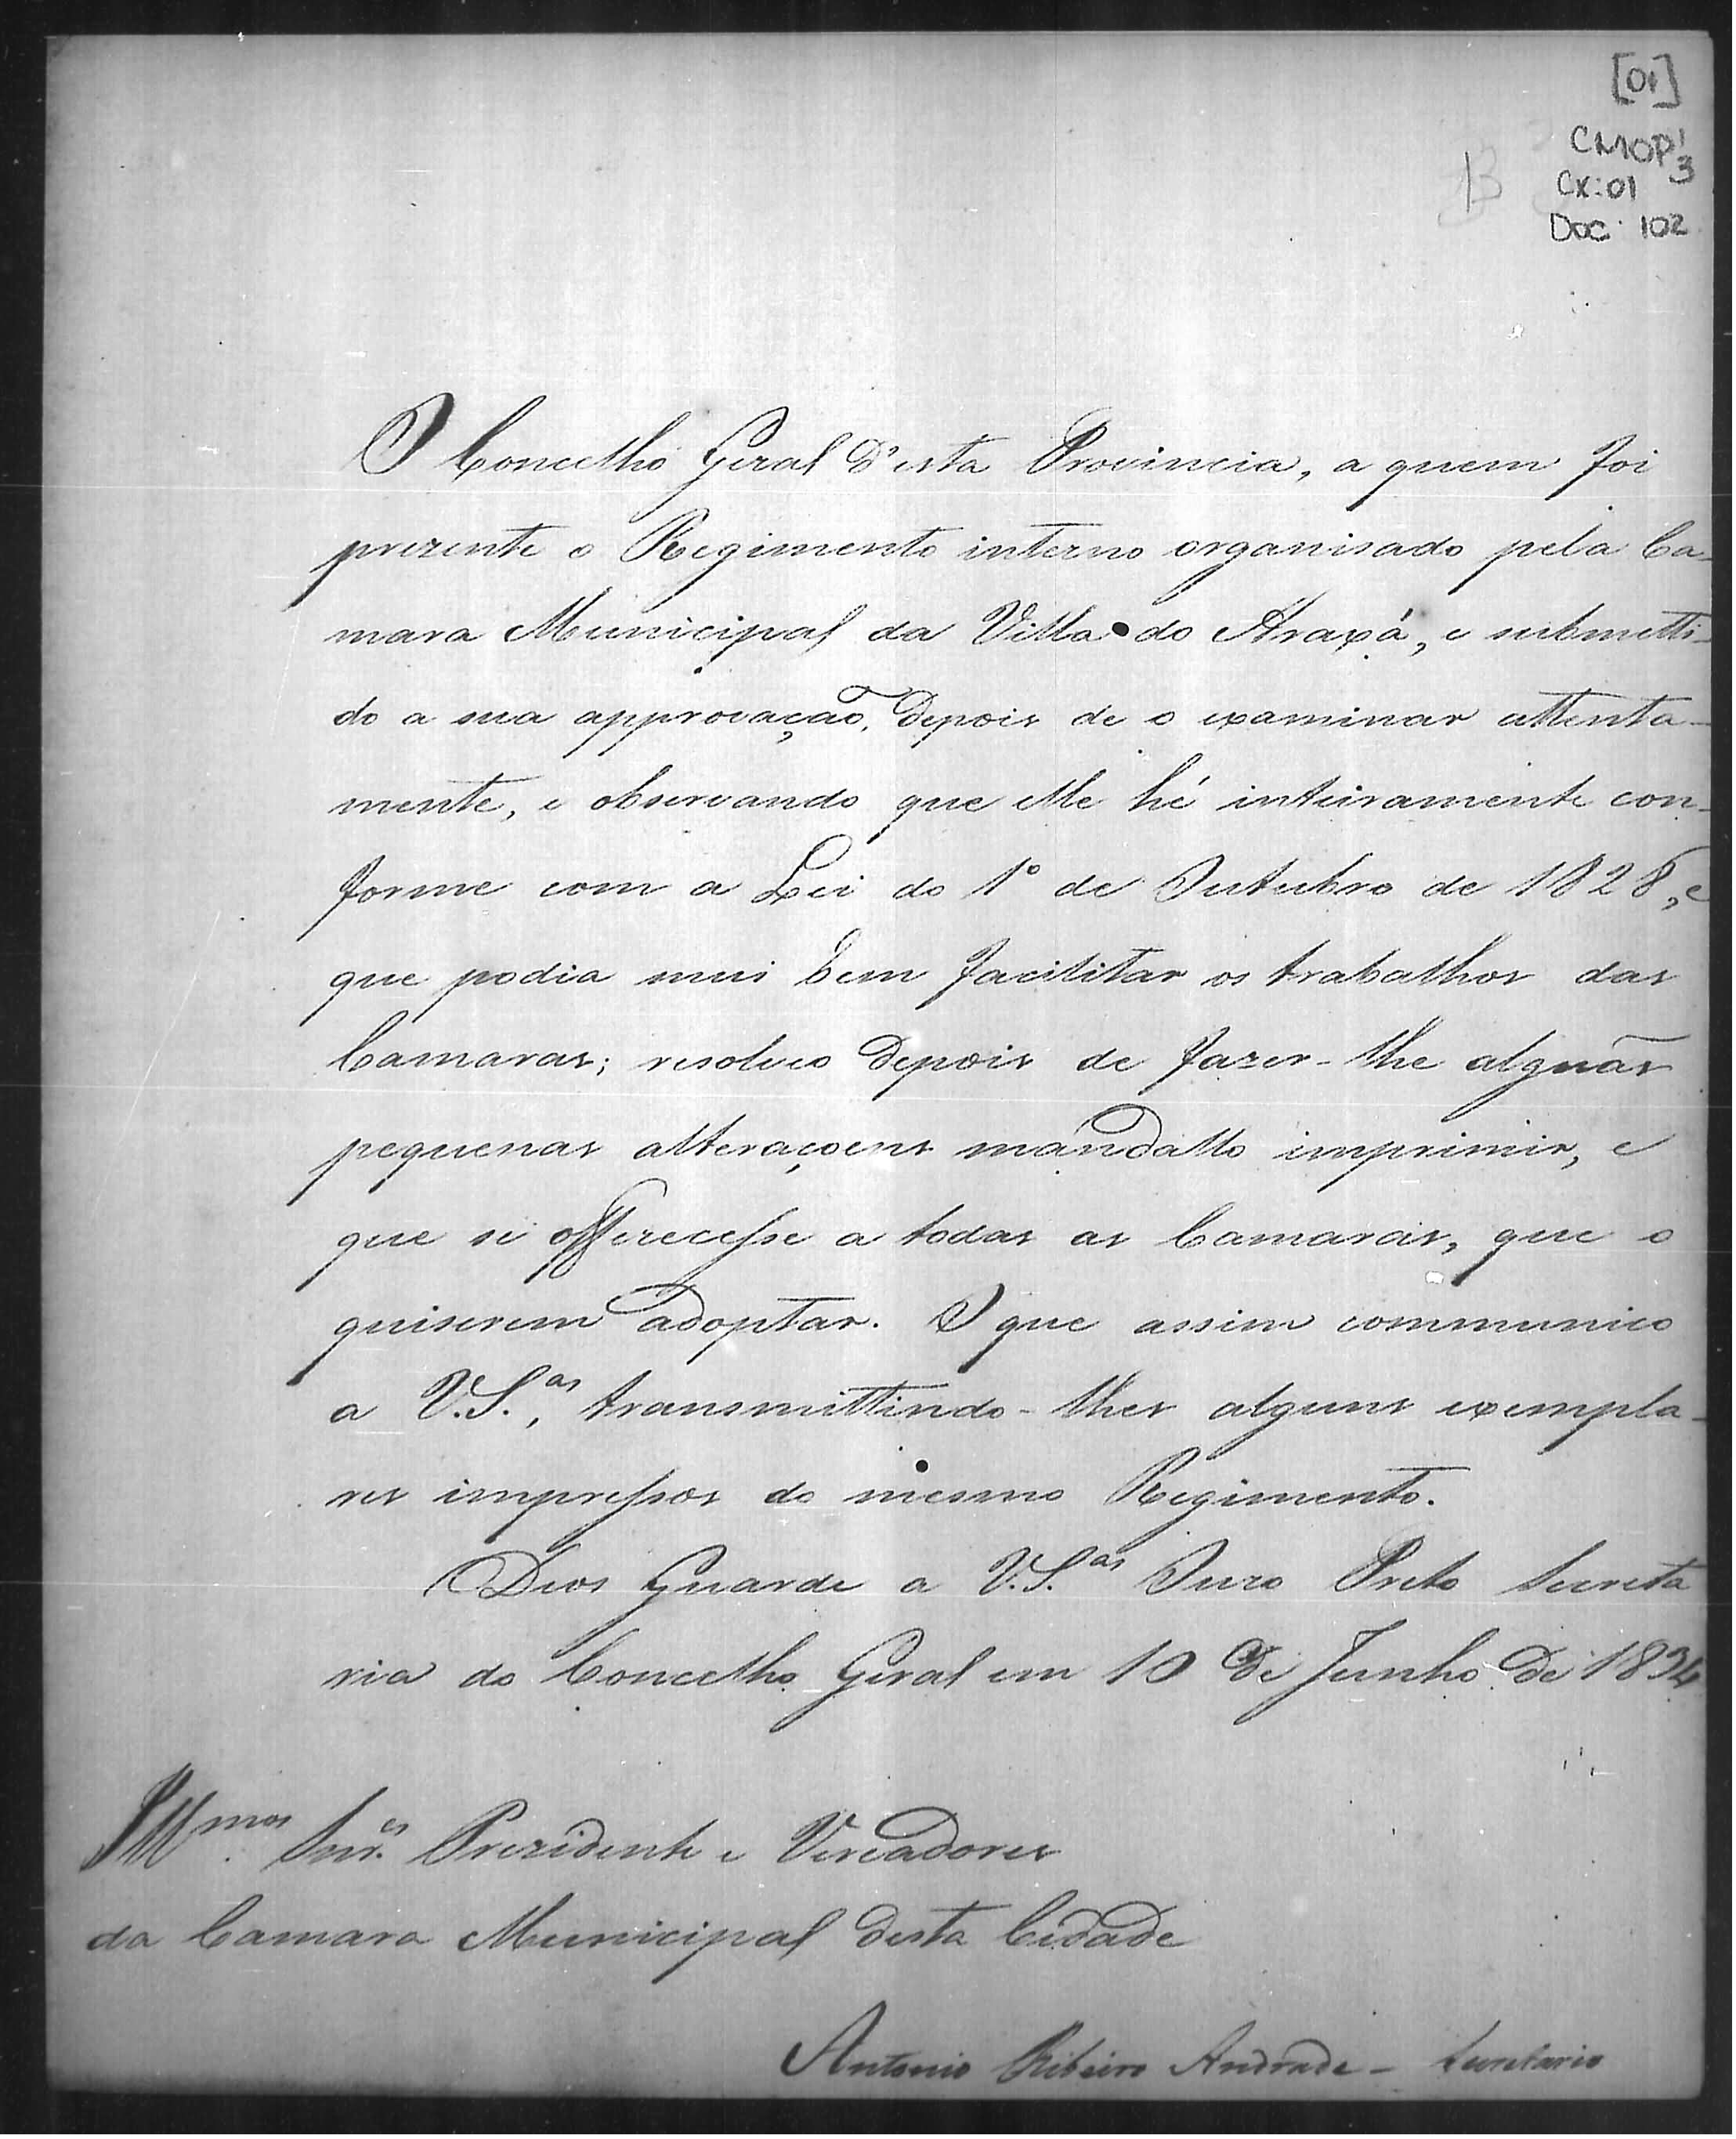 [01]
CMOP 1/3
Cx: 01
Doc: 102
O Concelho Geral d'esta Provincia, a quem foi
prezente o Regimento interno organisado pela Ca-
mara Municipal da Villa do Araxá, e submetti-
do a sua approvação, depois de o examinar attenta-
mente, e observando que elle hé inteiramente con-
forme com a Lei do 1º de Outubro de 1828, e
que podia mui bem facilitar os trabalhos das
Camaras; resolveo depois de fazer-lhe alguãs
pequenas alteraçoens mandallo imprimir, e
que se offerecesse a todas as Camaras, que o
quiserem adoptar. O que assim communico
a V.S.as, transmittindo-lhes alguns exempla-
res impressos do mesmo Regimento.
Deos Guarde a V.S.as Ouro Preto Secreta
ria do Concelho Geral em 10 de Junho de 1834
Illmos. Snr.es Prezidente e Vereadores
da Camara Municipal desta Cidade
Antonio Ribeiro Andrade - Secretario